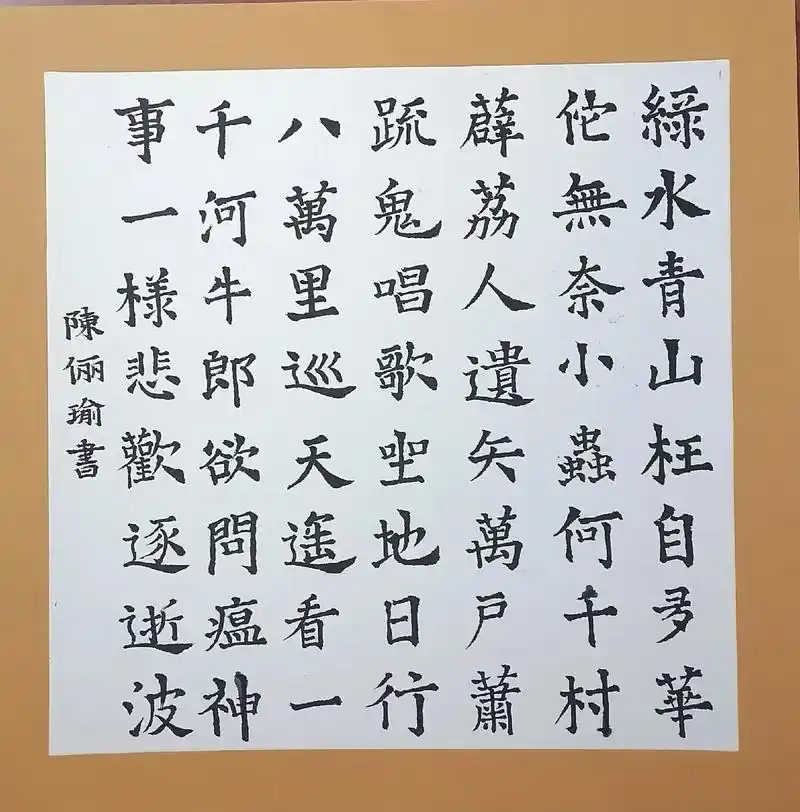 綠水青山枉自多華
佗無奈小蟲何千村
薜荔人遺矢萬戶蕭
疏鬼唱歌坐地日行
八萬里巡天遙看一
千河牛郎欲問瘟神
事一樣悲歡逐逝波
陳俪瑜書